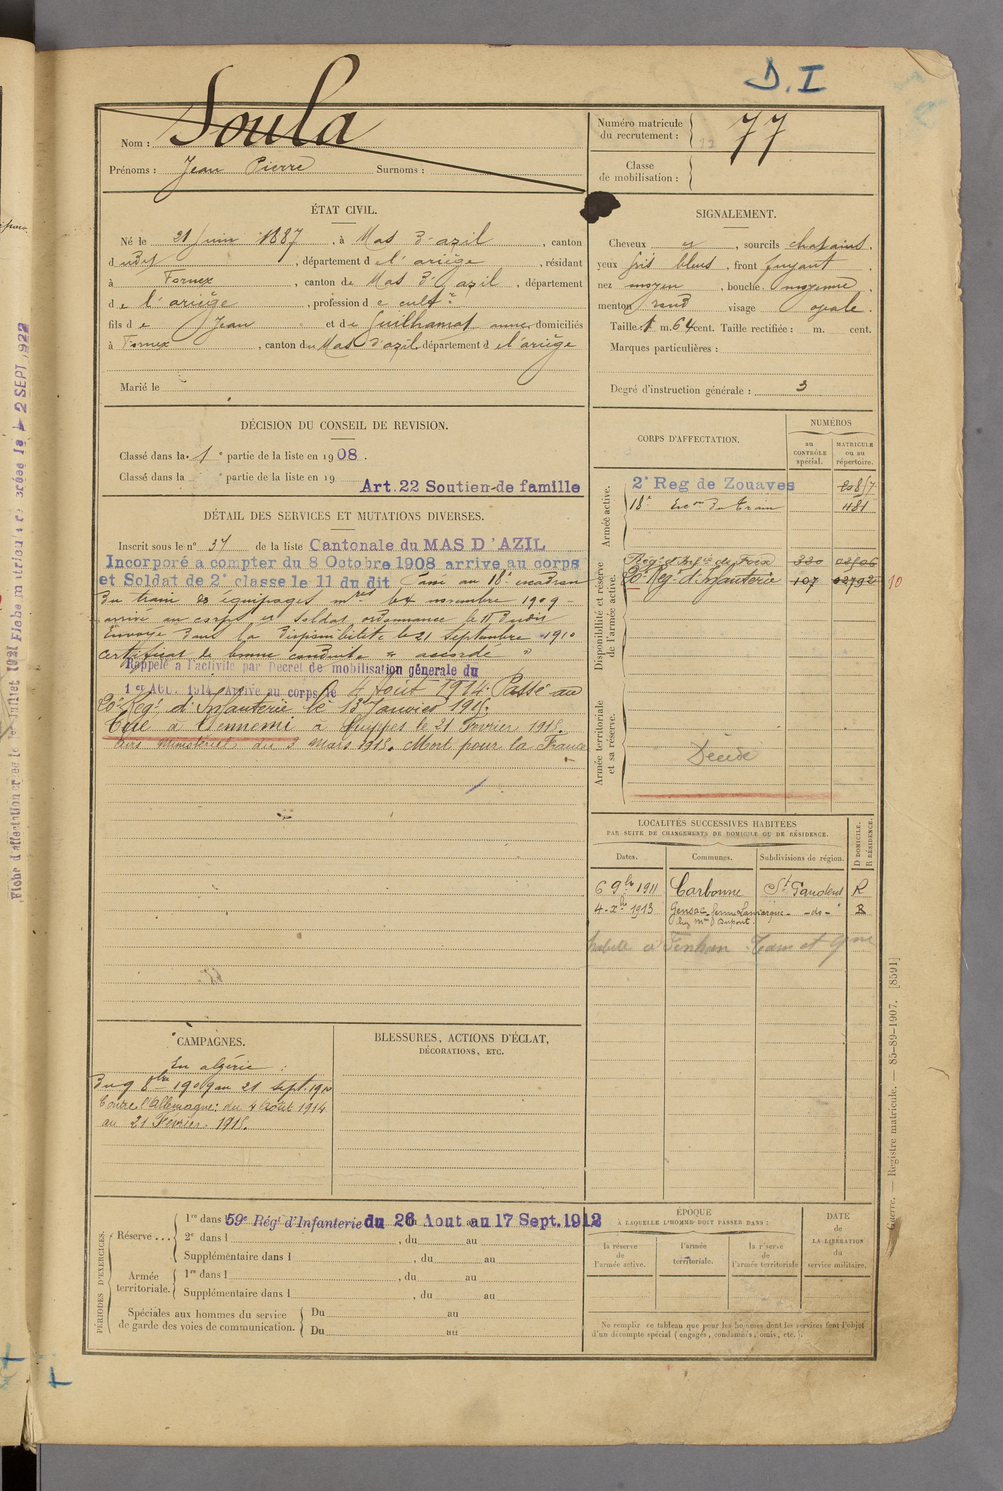 D.I
Nom : Soula
Prénoms : Jean Pierre Surnoms :
Numéro matricule du recrutement : 77
Classe de mobilisation :
ÉTAT CIVIL.
Né le 21 Juin 1887, à Mas d'azil, canton
d udit, département d e l'ariège, résidant
à Fornex, canton de Mas d'azil, département
d e l'ariège, profession d e cultr
fils d e Jean et d e Guilhamat anne, domiciliés
à Fornex, canton du Mas d'azil, département d e l'ariège
Marié le
SIGNALEMENT.
Cheveux et, sourcils chatains.
yeux gris bleus, front fuyant,
nez moyen, bouche moyenne,
menton rond visage ovale.
Taille : 1 m. 64 cent. Taille rectifiée : m. cent.
Marques particulières :
Degré d'instruction générale : 3
DÉCISION DU CONSEIL DE REVISION.
Classé dans la 1e partie de la liste en 1908.
Classé dans la e partie de la liste en 19
Art. 22 Soutien de famille
DÉTAIL DES SERVICES ET MUTATIONS DIVERSES.
Inscrit sous le n° 37 de la liste Cantonale du MAS D'AZIL
Incorporé a compter du 8 Octobre 1908 arrive au corps
et Soldat de 2e classe le 11 du dit Passé au 18e escadron
du train des équipages mres le novembre 1909
arrivé au corps et soldat ordonnance le 11 dudit
Envoyé dans la disponibilité le 21 Septembre 1910
Certificat de bonne conduite " accordé "
Rappelé a l'activité par Decret de mobilisation génerale du
1er AOU. 1914 Arrivé au corps le 4 Août 1914. Passé au
20e Regt d'Infanterie le 13 Janvier 1915.
Tué à l'ennemi à Suippes le 21 Février 1915.
Avis Ministériel du 3 Mars 1915. Mort pour la France
CORPS D'AFFECTATION.
NUMÉROS
au CONTRÔLE spécial.
MATRICULE ou au répertoire.
Armée active.
2e Reg de Zouaves
18e Escon du Train 481
Disponibilité et réserve de l'armée active.
Régt d'Infie de Foix 320
20e Reg. d'Infanterie 107 02792
10
Armée territoriale et sa réserve.
Décédé
LOCALITÉS SUCCESSIVES HABITÉES
PAR SUITE DE CHANGEMENTS DE DOMICILE OU DE RÉSIDENCE.
Dates. Communes. Subdivisions de région. D DOMICILE. R RÉSIDENCE.
6 9bre 1911 Carbonne St Gaudens R
4 Xbre 1913 Gensac ferme Lamarque - do - R
chez Mme Dupont
habite à Tarn et Gne
CAMPAGNES.
En algérie :
Du 9 8bre 1909 au 21 sept. 1910
Contre l'Allemagne : du 4 Août 1914
au 21 Février 1915.
BLESSURES, ACTIONS D'ÉCLAT,
DÉCORATIONS, ETC.
PÉRIODES D'EXERCICES.
Réserve... 1re dans l 59e Régt d'Infanterie du 26 Aout au 17 Sept. 1912
2e dans l , du au
Supplémentaire dans l , du au
Armée territoriale. 1re dans l , du au
Supplémentaire dans l , du au
Spéciales aux hommes du service de garde des voies de communication. Du au
Du au
ÉPOQUE
À LAQUELLE L'HOMME DOIT PASSER DANS :
la réserve de l'armée active.
l'armée territoriale.
la réserve de l'armée territoriale
DATE de LA LIBÉRATION du service militaire.
Ne remplir ce tableau que pour les hommes dont les services font l'objet
d'un décompte spécial (engagés, condamnés, omis, etc.).
Guerre. — Registre matricule. — 85-89-1907. [8591]
2 SEPT 1922